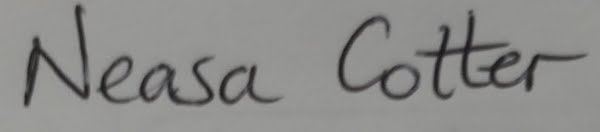 Neasa Cotter